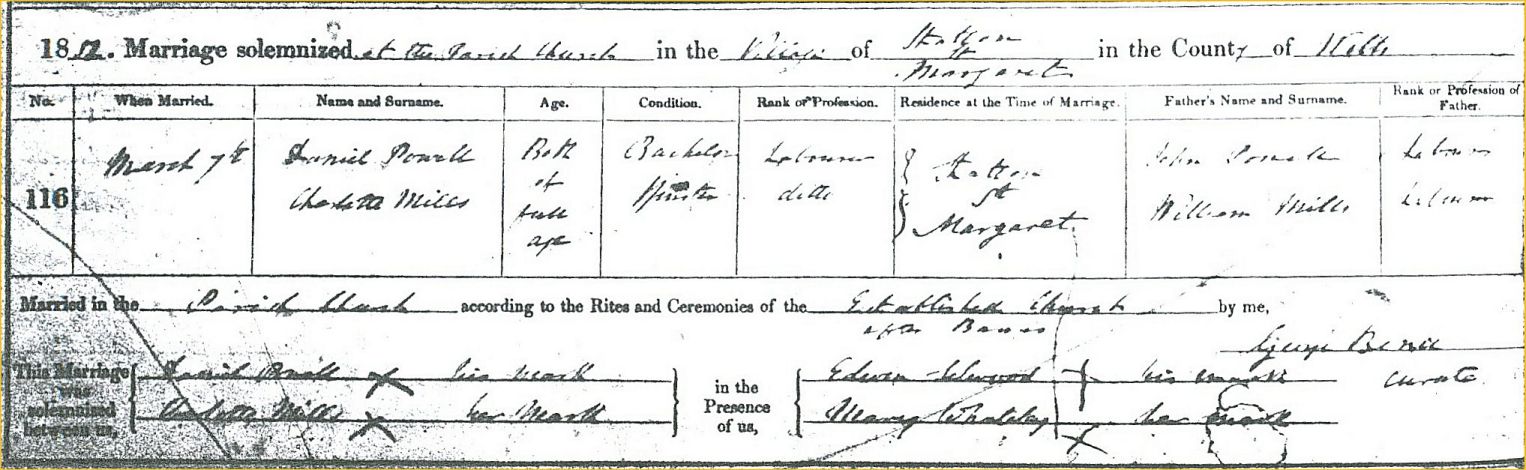 1852. Marriage solemnized at the Parish Church in the Village of Stratton St Margaret in the County of Wilts
No. When Married. Name and Surname. Age. Condition. Rank or Profession. Residence at the Time of Marriage. Father's Name and Surname. Rank or Profession of Father.
116 March 7th Daniel Powell Both of full age Bachelor Labourer Stratton St Margaret John Powell Labourer
Charlotte Mills Spinster ditto William Mills Labourer
Married in the Parish Church according to the Rites and Ceremonies of the Established Church by me,
after Banns
George
This Marriage was solemnized between us, Daniel Powell X his mark in the Presence of us, Edwin X his mark curate
Charlotte Mills X her Mark Mary X her mark